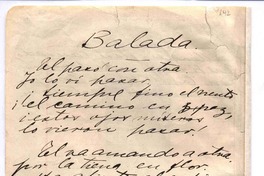 Balada.
El pasó con otra.
yo lo ví pasar.
¡Siempre fino el viento
i el camino en paz,
i estos ojos míseros
lo vieron pasar!
El va amando a otra
por la tierra en flor.